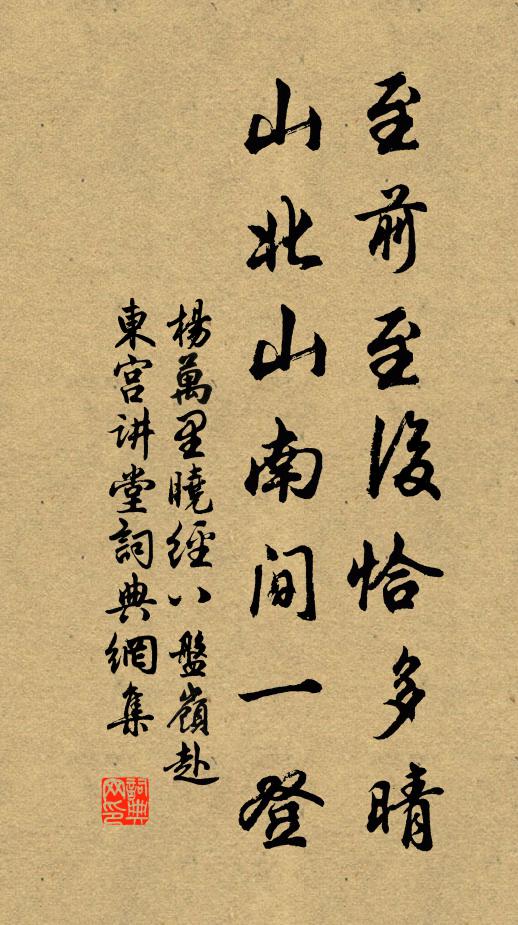 至前至後恰多晴
山北山南間一登
楊萬里曉經八盤嶺赴
東宮讲堂詞典網集
詞典
网印